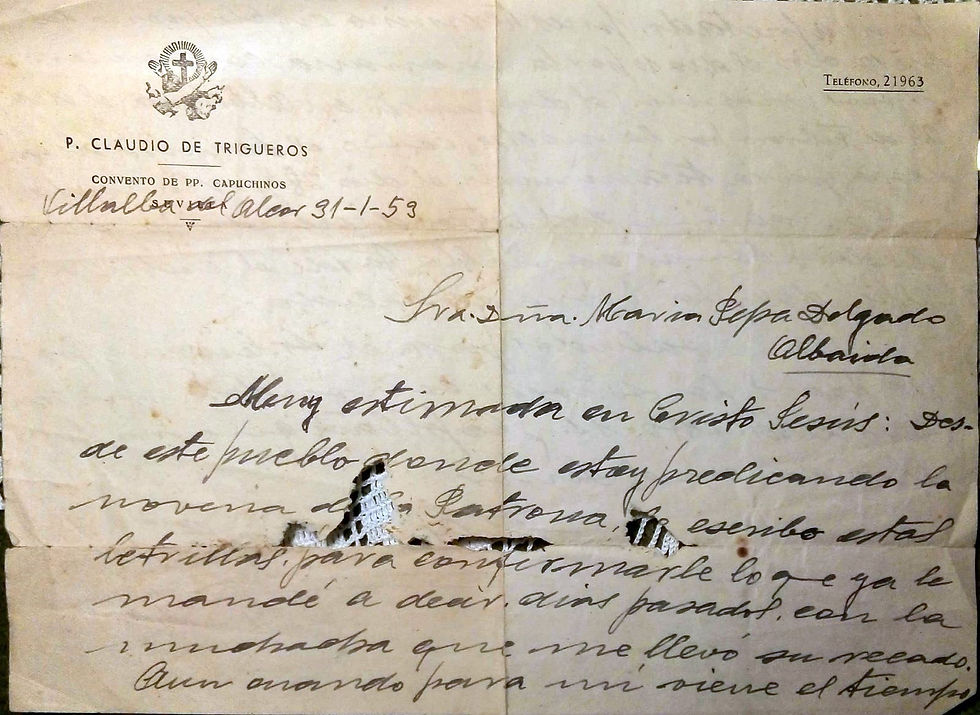 TELÉFONO, 21963
P. CLAUDIO DE TRIGUEROS
CONVENTO DE PP. CAPUCHINOS
SEVILLA
Villalba del Alcor 31-1-59
Sra. Dña. Maria Pepa Delgado
Albaida
Muy estimada en Cristo Jesús: Des-
de este pueblo donde estoy predicando la
novena de la Patrona, le escribo estas
letrillas, para confirmarle lo que ya le
mandé a decir, dias pasados, con la
muchacha que me llevó su recado.
Aun cuando para mi viene el tiempo